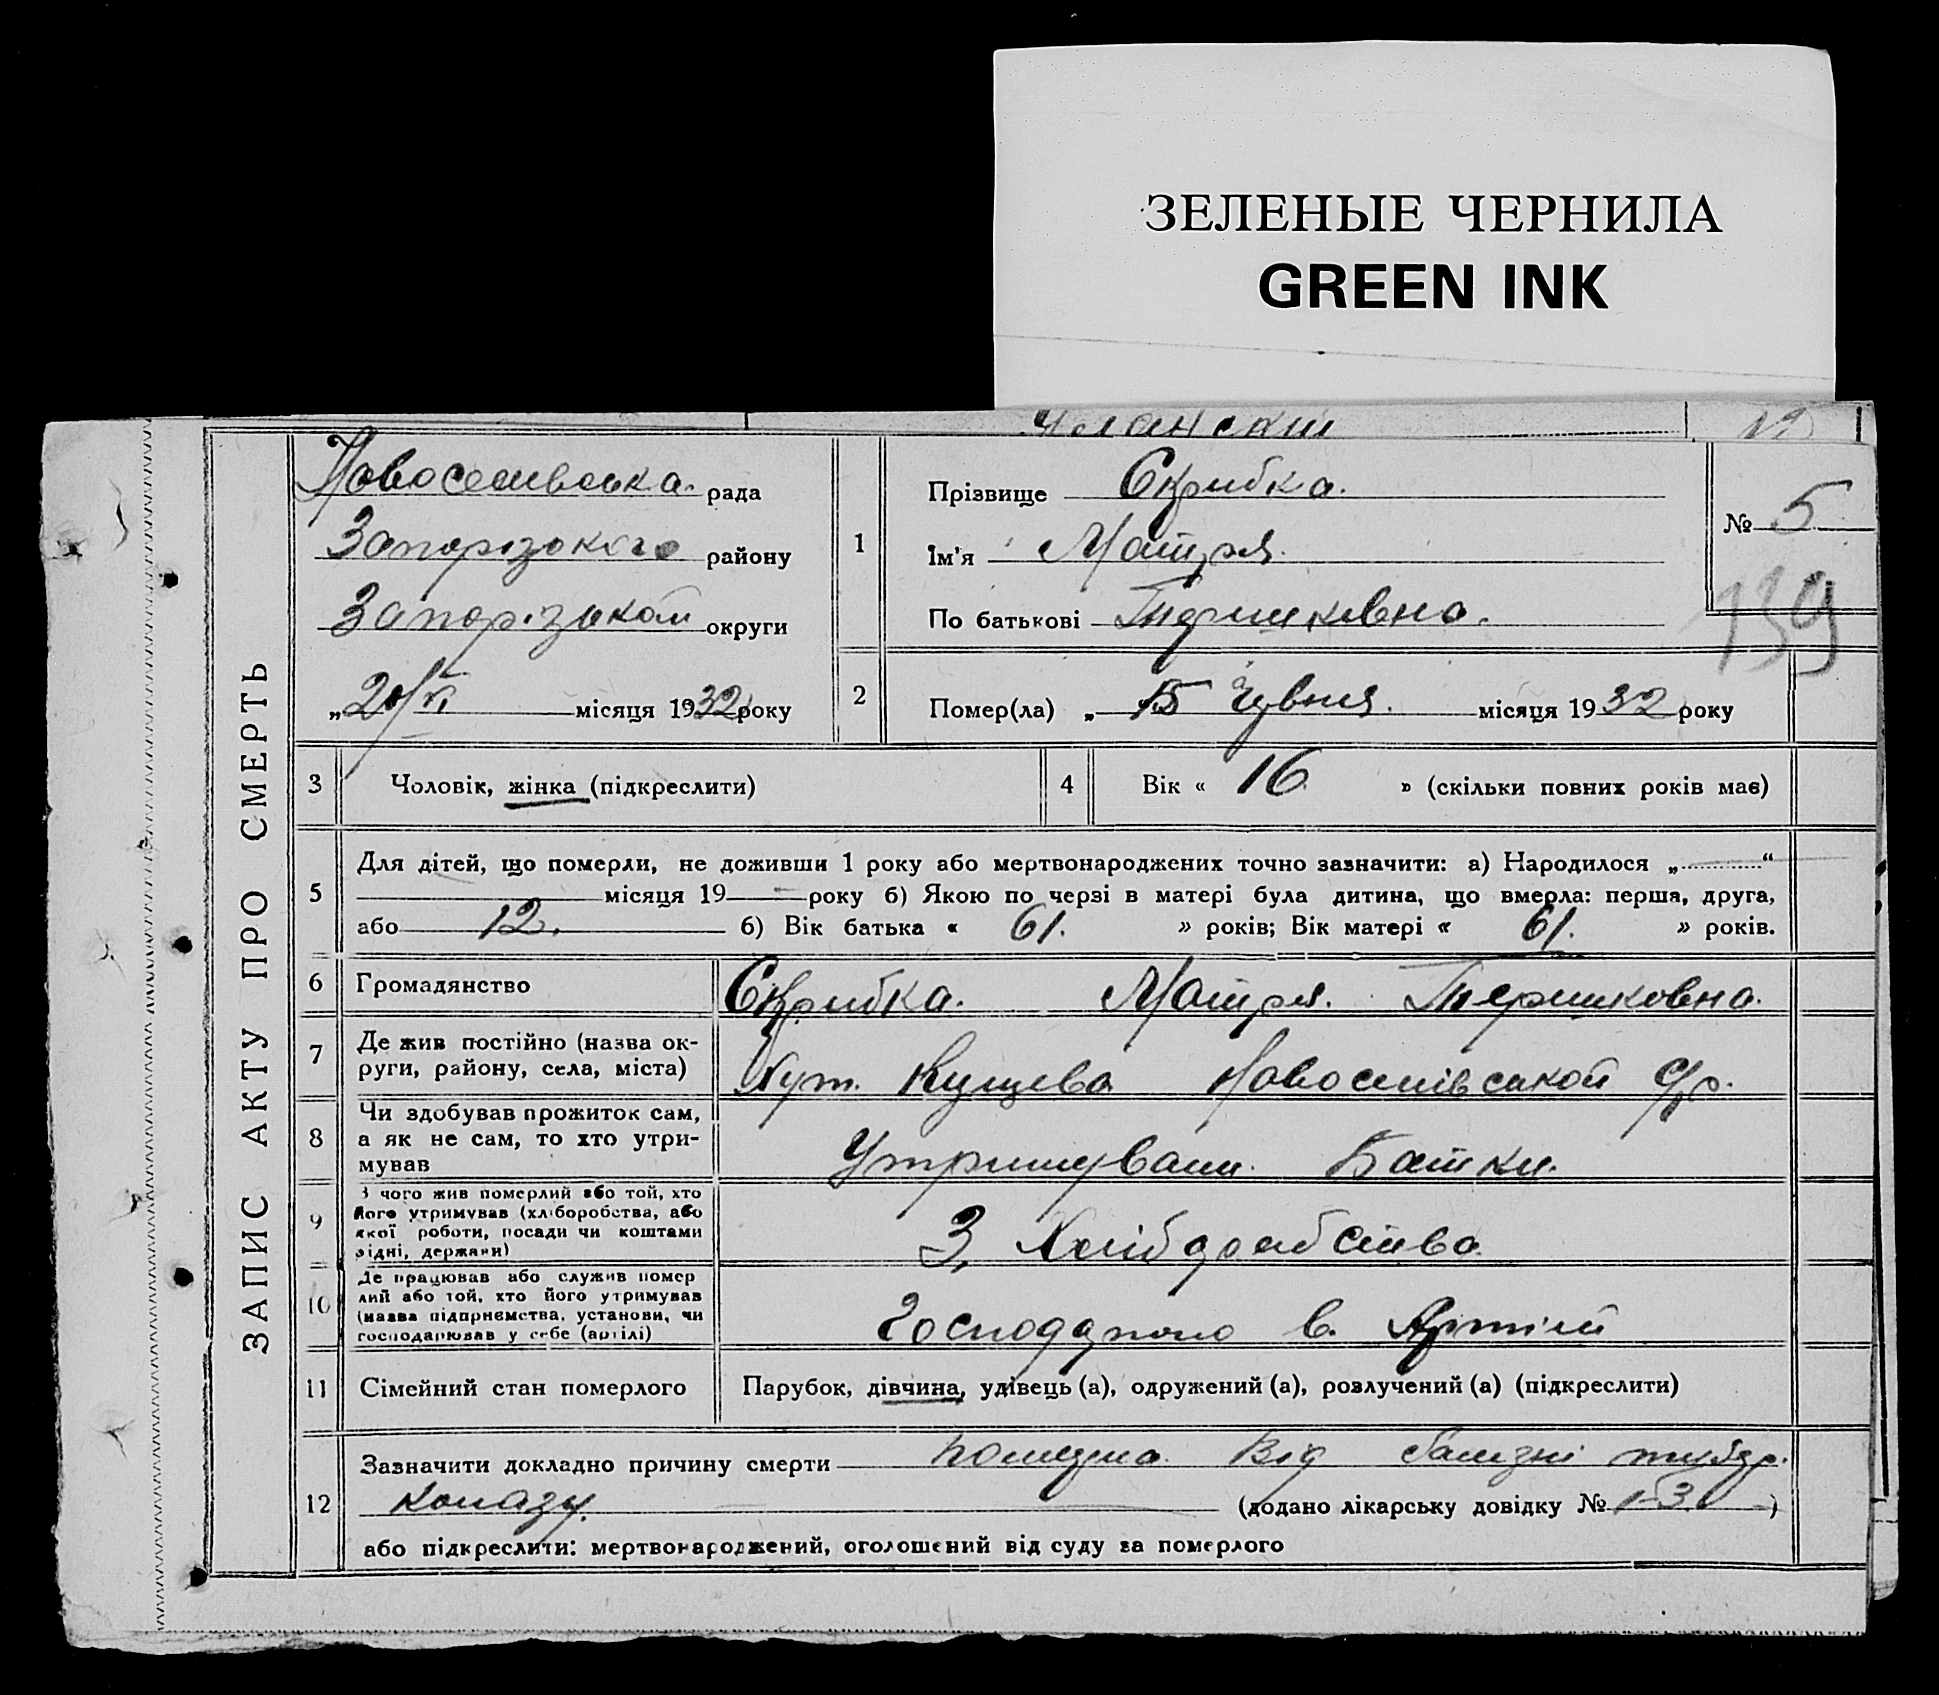 ЗЕЛЕНЫЕ ЧЕРНИЛА
GREEN INK
ЗАПИС АКТУ ПРО СМЕРТЬ
Новоселивська рада
Запорізького району
Запорізькой округи
місяця 1932 року
1
Прізвище Скрибка.
Ім'я Матря.
По батькові
№ 5
139
2
Помер(ла) „ 15 Чувня. місяця 1932 року
3 Чоловік, жінка (підкреслити)
4 Вік « 16 » (скільки повних років має)
5
Для дітей, що померли, не доживши 1 року або мертвонароджених точно зазначити: а) Народилося „ “
місяця 19 року б) Якою по черзі в матері була дитина, що вмерла: перша, друга,
або 12. б) Вік батька « 61. » років; Вік матері « 61. » років.
6 Громадянство Скрибка. Матря. Терешковна.
7 Де жив постійно (назва ок-
руги, району, села, міста)
Хут. Кущева Новоселівськой С/р.
8 Чи здобував прожиток сам,
а як не сам, то хто утри-
мував
Утримували. Батки.
9 З чого жив померлий або той, хто
його утримував (хліборобства, або
якої роботи, посади чи коштами
рідні, держави)
З Хліборобства
10 Де працював або служив помер
лий або той, хто його утримував
(назва підприємства, установи, чи
господарював у себе (артілі)
в. Артілі
11 Сімейний стан померлого Парубок, дівчина, удівець (а), одружений (а), розлучений (а) (підкреслити)
12
Зазначити докладно причину смерти Від
(додано лікарську довідку № )
або підкреслити: мертвонароджений, оголошений від суду за померлого